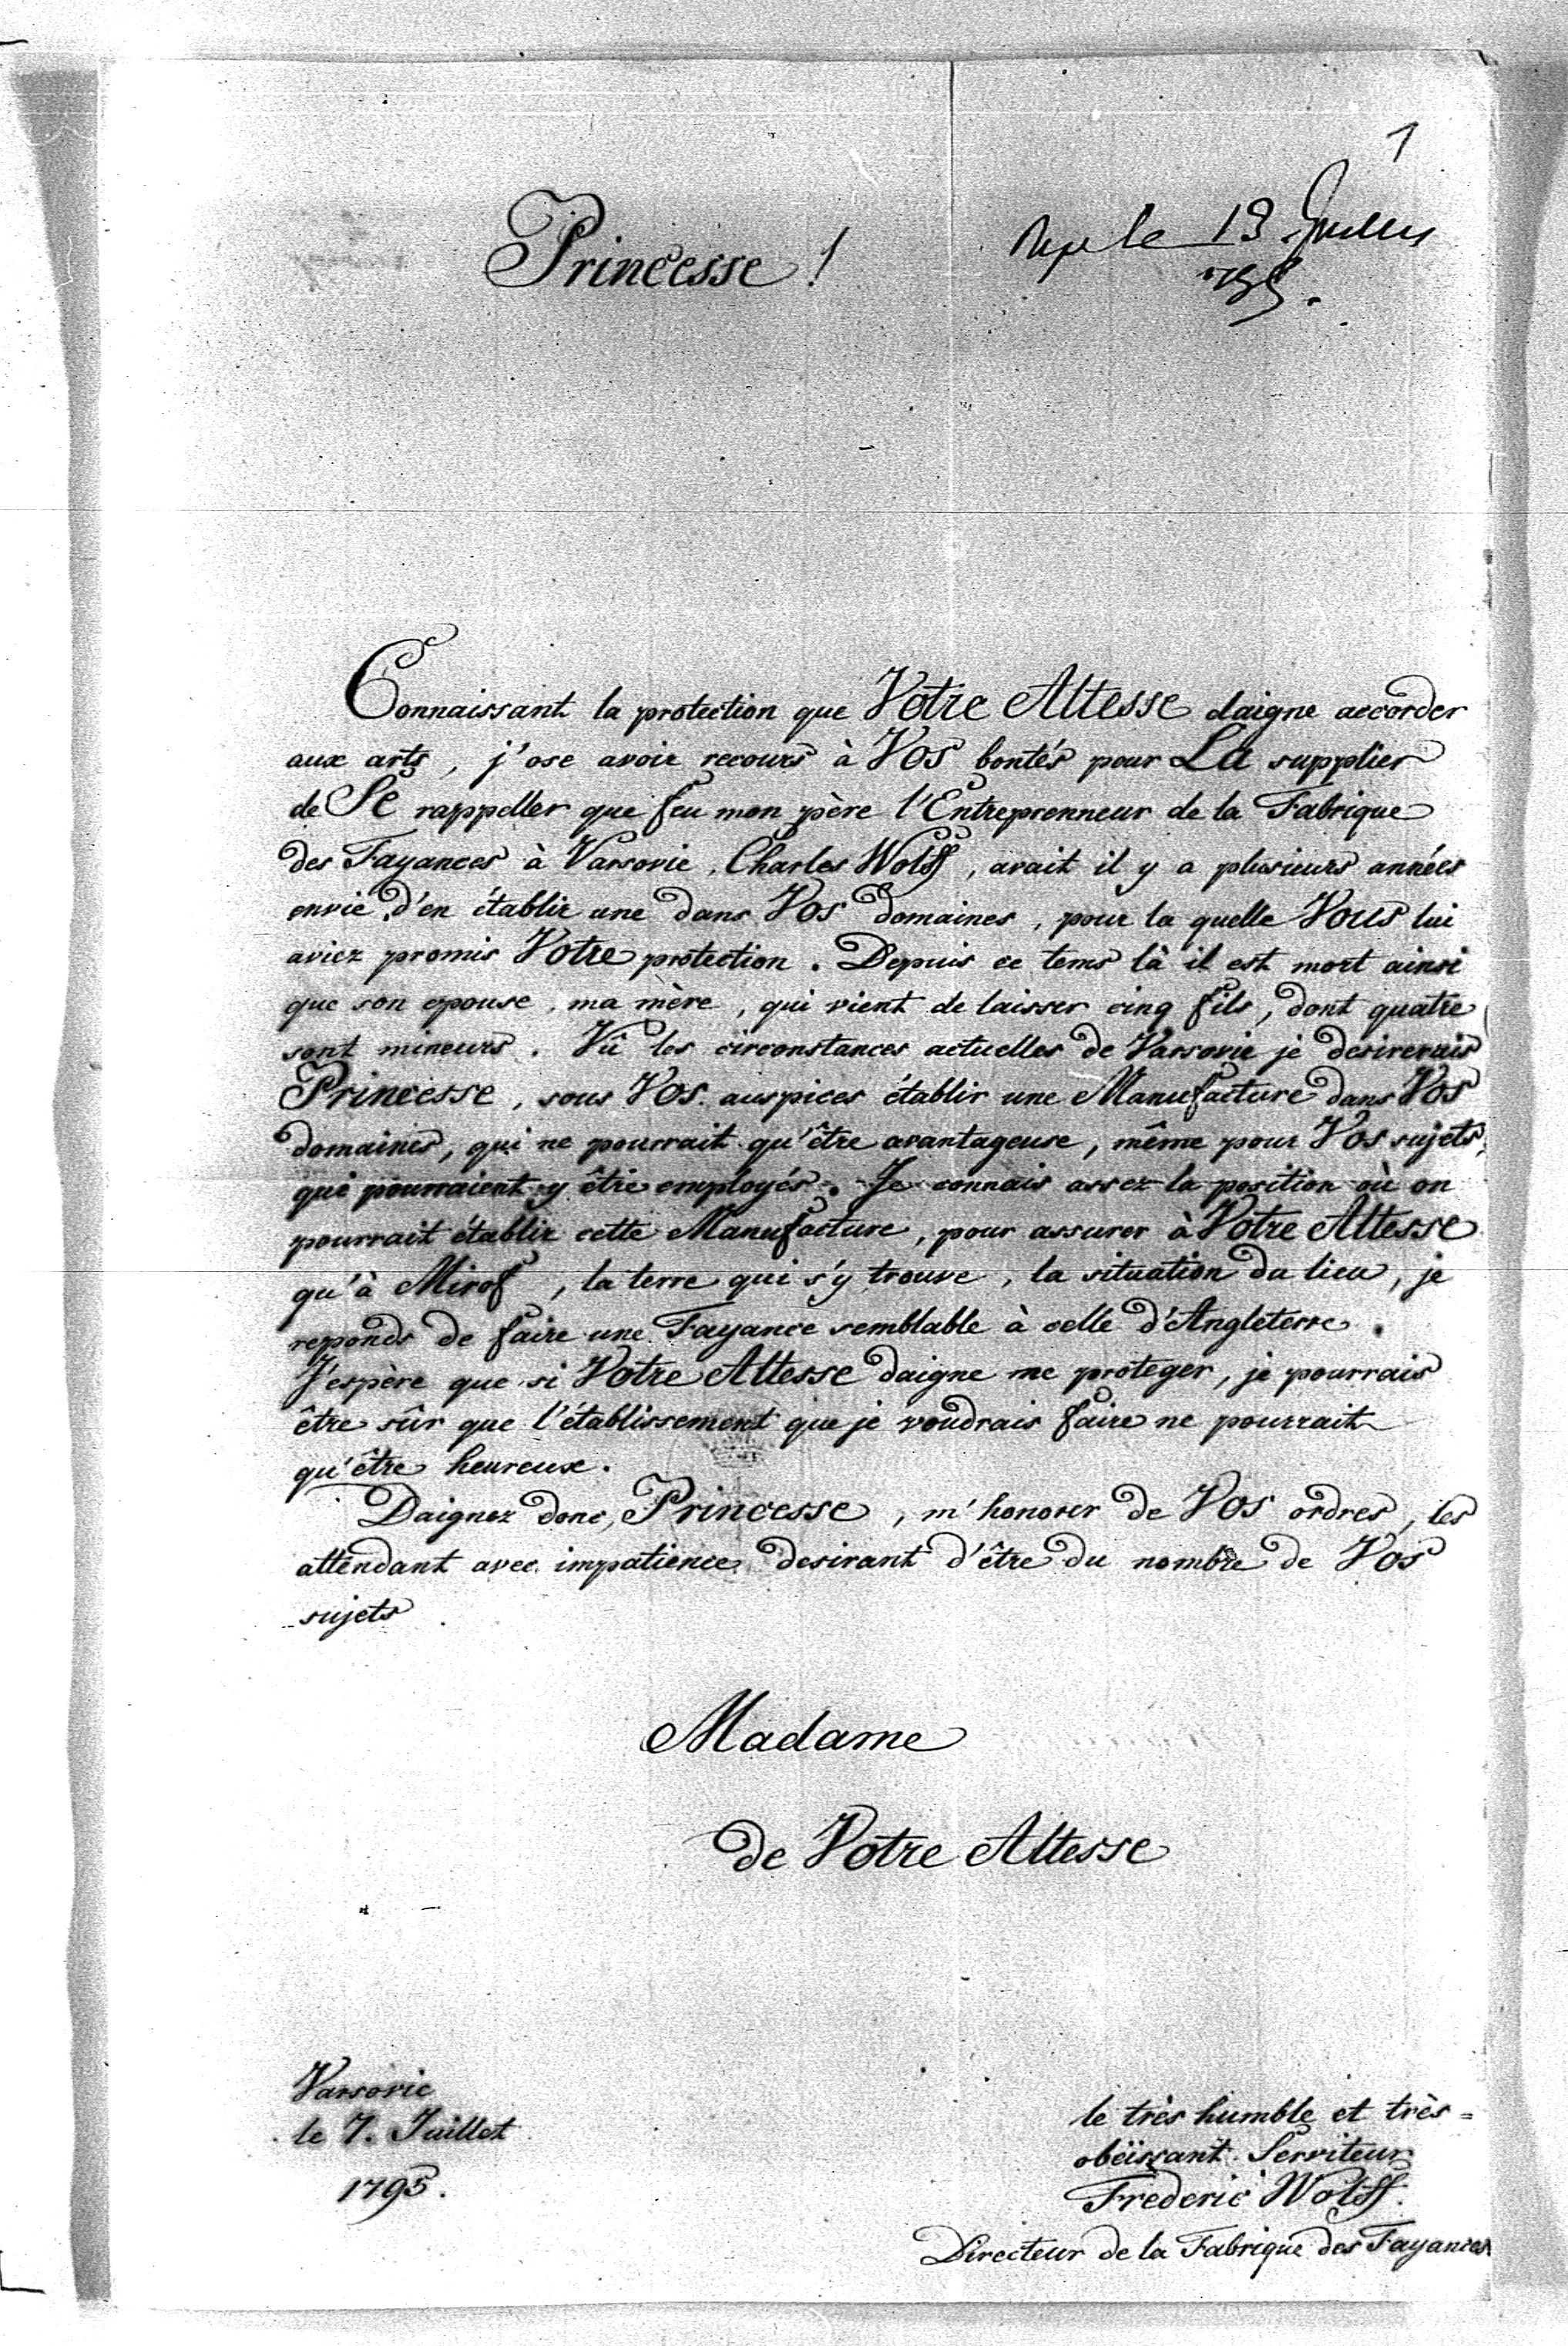 1
Princesse !
le 13 Juillet
795.
Connaissant la protection que Votre Altesse daigne accorder
aux arts, j'ose avoir recours à Vos bontés pour La supplier
de Se rappeller que feu mon père l'Entreprenneur de la Fabrique
des Fayances à Varsovie, Charles Wolff, avait il y a plusieurs années
envie d'en établir une dans Vos domaines, pour la quelle Vous lui
aviez promis Votre protection. Depuis ce tems là il est mort ainsi
que son epouse, ma mère, qui vient de laisser cinq fils, dont quatre
sont mineurs. Vû les circonstances actuelles de Varsovie je desirerais
Princesse, sous Vos auspices établir une Manufacture dans Vos
domaines, qui ne pourrait qu'être avantageuse, même pour Vos sujets,
qui pourraient y être employés. Je connais assez la position où on
pourrait établir cette Manufacture, pour assurer à Votre Altesse
qu'à Mirof, la terre qui s'y trouve, la situation du lieu, je
reponds de faire une Fayance semblable à celle d'Angleterre.
J'espère que si Votre Altesse daigne me proteger, je pourrais
être sûr que l'établissement que je voudrais faire ne pourrait
qu'être heureux.
Daignez donc, Princesse, m'honorer de Vos ordres, les
attendant avec impatience desirant d'être du nombre de Vos
sujets
Madame
de Votre Altesse
Varsovie
le 7. Juillet
1795.
le très humble et très=
obëissant Serviteur
Frederic Wolff.
Directeur de la Fabrique des Fayances